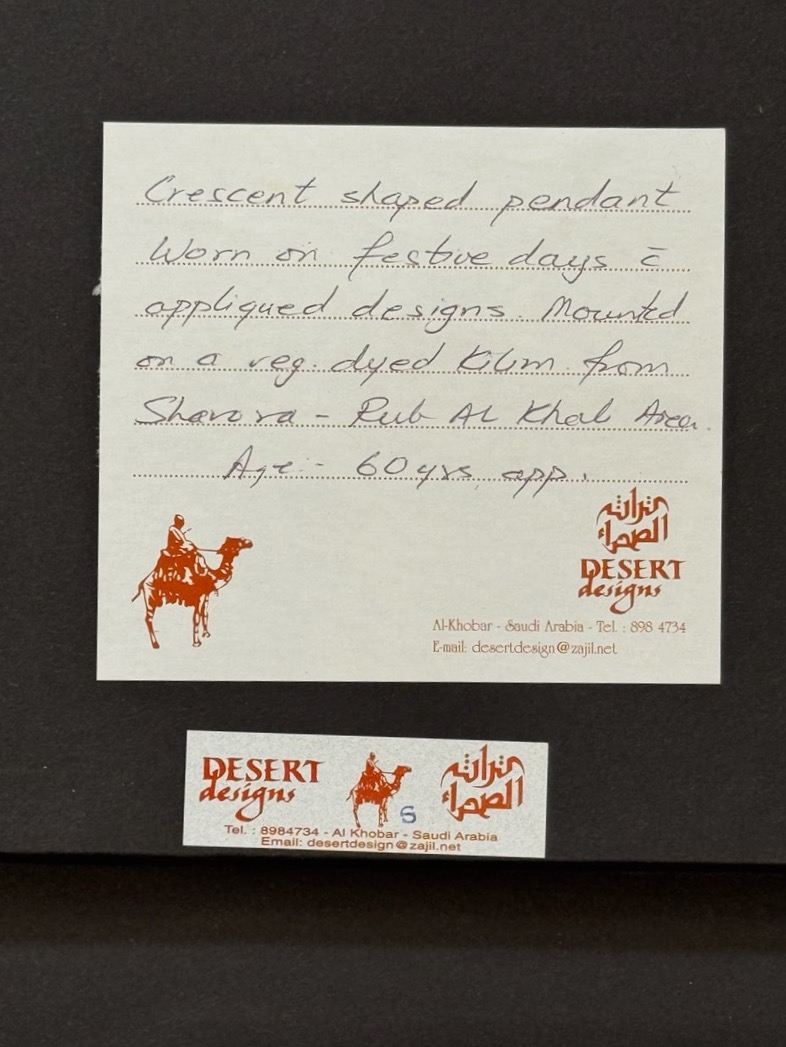 Crescent shaped pendant
Worn on festive days c̄
appliqued designs. Mounted
on a veg. dyed Kilim from
Sharora - Rub AL Khal Area.
Age:- 60 yrs, app.
تراثه
الصحراء
DESERT
designs
Al-Khobar - Saudi Arabia - Tel. : 898 4734
E-mail: desertdesign@zajil.net
DESERT
designs
تراثه
الصحراء
S
Tel. : 8984734 - Al Khobar - Saudi Arabia
Email: desertdesign@zajil.net